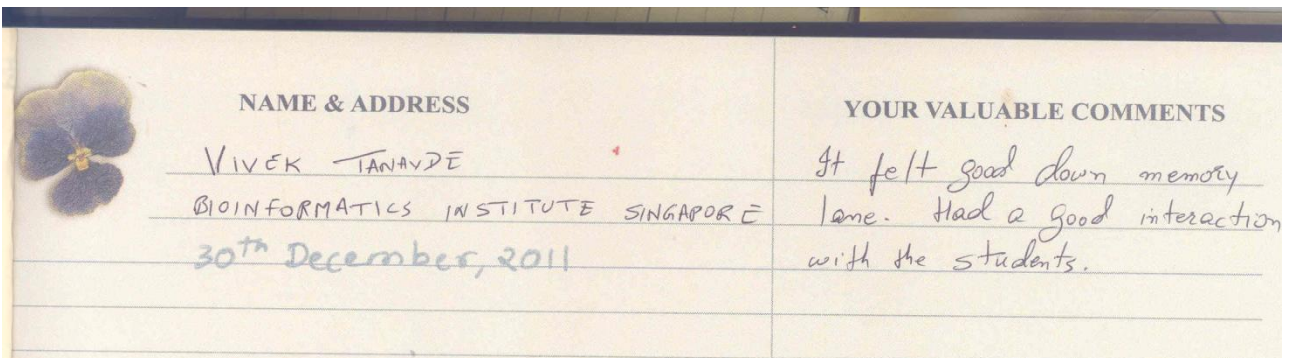 NAME & ADDRESS
VIVEK TANAVDE
BIOINFORMATICS INSTITUTE SINGAPORE
30th December, 2011
YOUR VALUABLE COMMENTS
It felt good down memory
lane. Had a good interaction
with the students.